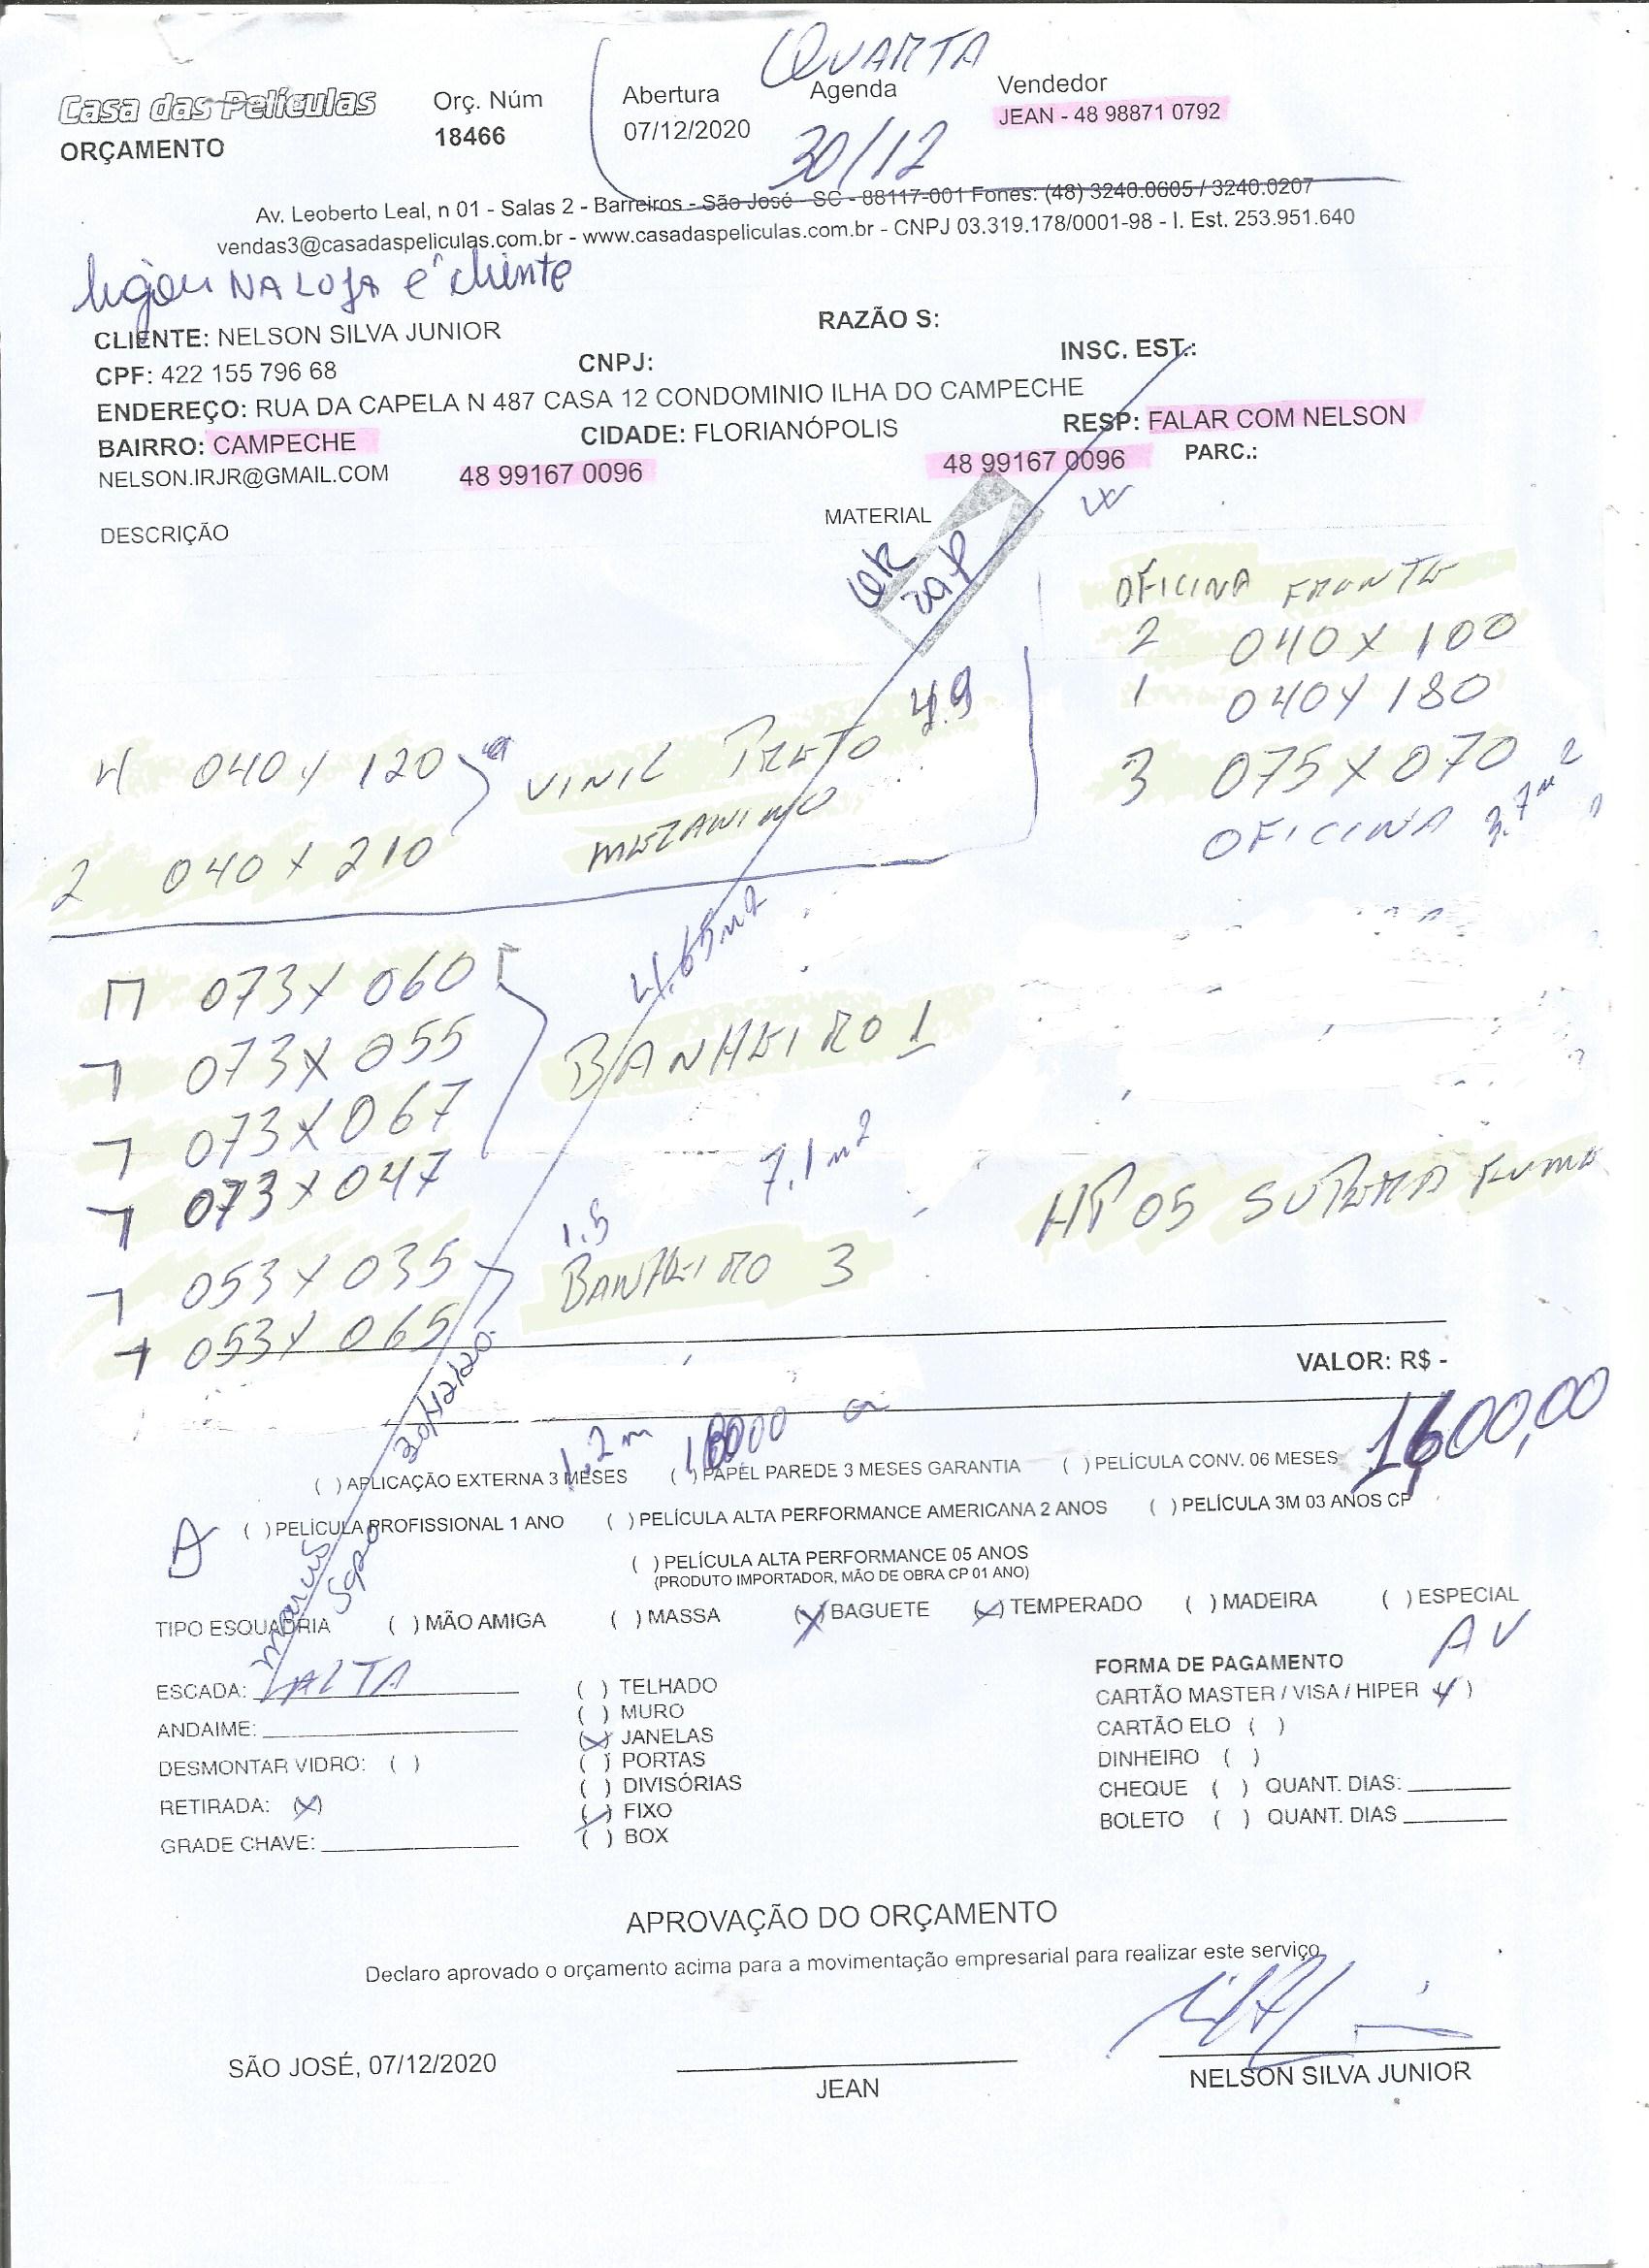 QUARTA
Casa das Películas
Orç. Núm
Abertura
Agenda
Vendedor
ORÇAMENTO
18466
07/12/2020
30/12
JEAN - 48 98871 0792
Av. Leoberto Leal, n 01 - Salas 2 - Barreiros - São José - SC - 88117-001 Fones: (48) 3240.0605 / 3240.0207
vendas3@casadaspeliculas.com.br - www.casadaspeliculas.com.br - CNPJ 03.319.178/0001-98 - I. Est. 253.951.640
ligou NA LOJA e cliente
CLIENTE: NELSON SILVA JUNIOR
RAZÃO S:
CPF: 422 155 796 68
CNPJ:
INSC. EST.:
ENDEREÇO: RUA DA CAPELA N 487 CASA 12 CONDOMINIO ILHA DO CAMPECHE
BAIRRO: CAMPECHE
CIDADE: FLORIANÓPOLIS
RESP: FALAR COM NELSON
NELSON.IRJR@GMAIL.COM
48 99167 0096
48 99167 0096
PARC.:
DESCRIÇÃO
MATERIAL
OK
zap
OFICINA FRONTE
2 040 X 100
1 040 X 180
3 075 X 070
OFICINA 3.7 m2
4 040 X 120
VINIL PRETO 4.9
2 040 X 210
MEZANINO
073 X 060
4.65 m2
073 X 055
BANHEIRO 1
073 X 067
073 X 047
7.1 m2
HP 05 SUPERA FUME
053 X 035
1.5
BANHEIRO 3
053 X 065
VALOR: R$ -
30/12/20
1.2 m
1600,00
( ) APLICAÇÃO EXTERNA 3 MESES ( ) PAPEL PAREDE 3 MESES GARANTIA ( ) PELÍCULA CONV. 06 MESES
( ) PELÍCULA PROFISSIONAL 1 ANO ( ) PELÍCULA ALTA PERFORMANCE AMERICANA 2 ANOS ( ) PELÍCULA 3M 03 ANOS CP
( ) PELÍCULA ALTA PERFORMANCE 05 ANOS
(PRODUTO IMPORTADOR, MÃO DE OBRA CP 01 ANO)
TIPO ESQUADRIA ( ) MÃO AMIGA ( ) MASSA (X) BAGUETE (X) TEMPERADO ( ) MADEIRA ( ) ESPECIAL
AV
ESCADA: ALTA
ANDAIME:
DESMONTAR VIDRO: ( )
RETIRADA: (X)
GRADE CHAVE:
( ) TELHADO
( ) MURO
(X) JANELAS
( ) PORTAS
( ) DIVISÓRIAS
(/) FIXO
( ) BOX
FORMA DE PAGAMENTO
CARTÃO MASTER / VISA / HIPER 4 )
CARTÃO ELO ( )
DINHEIRO ( )
CHEQUE ( ) QUANT. DIAS:
BOLETO ( ) QUANT. DIAS
APROVAÇÃO DO ORÇAMENTO
Declaro aprovado o orçamento acima para a movimentação empresarial para realizar este serviço
SÃO JOSÉ, 07/12/2020
JEAN
NELSON SILVA JUNIOR